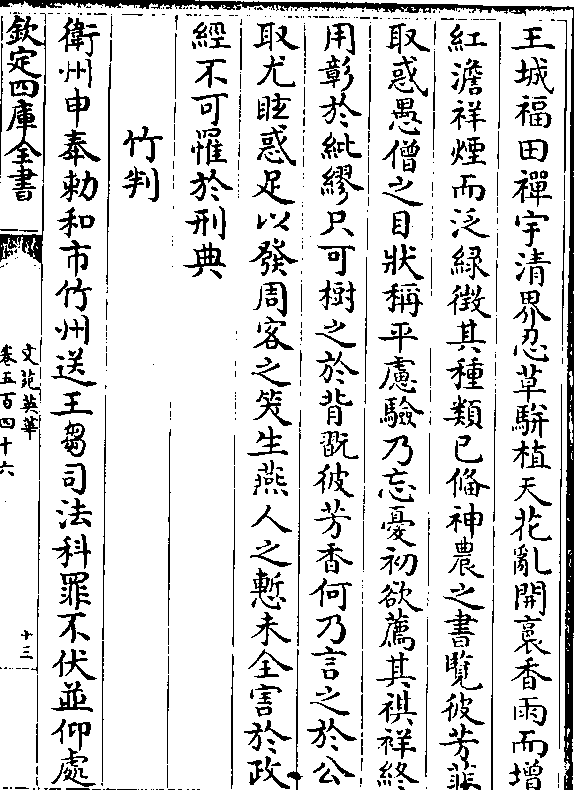 王城福田禪宇清界忍草駢植天花亂開裛香雨而增
紅澹祥煙而泛緑徴其種類已偹神農之書覽彼芳菲
取惑愚僧之目狀稱平慮驗乃忘憂初欲薦其祺祥終
用彰於紕繆只可樹之於背翫彼芳香何乃言之於公
取尤眩惑足以發周客之笑生燕人之慙未全害於政
經不可罹於刑典
竹判
衛州申奉勅和市竹州送王芻司法科罪不伏並仰處
欽定四庫全書
文苑英華
卷五百四十六
十三